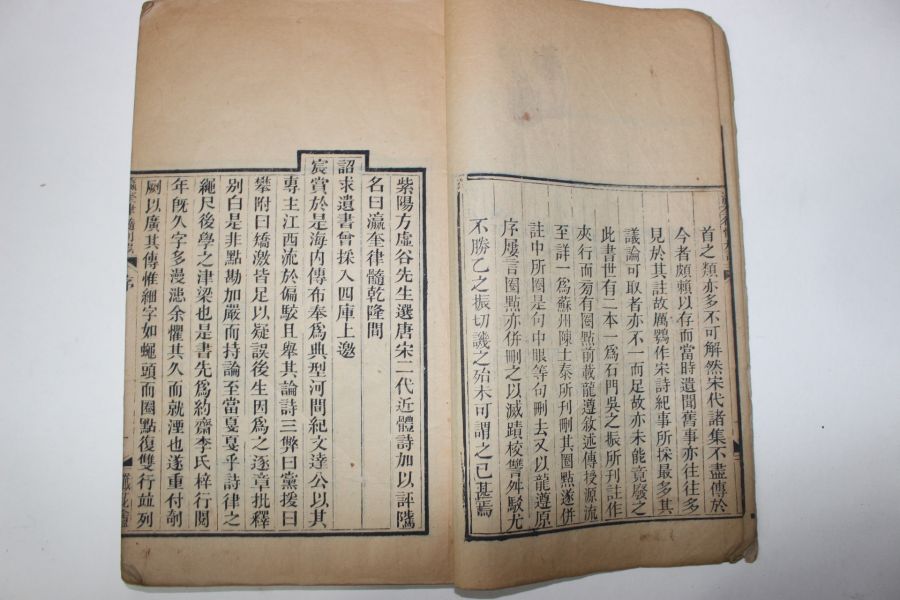 首之類亦多不可解然宋代諸集不盡傳於
今者頗賴以存而當時遺聞舊事亦往往多
見於其註故厲鶚作宋詩紀事所採最多其
議論可取者亦不一而足故亦未能竟廢之
此書世有二本一爲石門吳之振所刊註作
夾行而旁有圈點前載龍遵敘述傳授源流
至詳一爲蘇州陳士泰所刊刪其圈點遂併
註中所圈是句中眼等句刪去又以龍遵原
序屢言圈點亦併刪之以滅蹟校讐舛駁尤
不勝乙之振切譏之殆未可謂之已甚焉
紫陽方虛谷先生選唐宋二代近體詩加以評隲
名曰瀛奎律髓乾隆間
詔求遺書曾採入四庫上邀
宸賞於是海内傳布奉爲典型河間紀文達公以其
專主江西流於偏駁且舉其論詩三弊曰黨援曰
攀附曰矯激皆足以疑誤後生因爲之逐章批釋
別白是非點勘加嚴而持論至當戛戛乎詩律之
繩尺後學之津梁也是書先爲約齋李氏梓行閱
年旣久字多漫漶余懼其久而就湮也遂重付剞
劂以廣其傳惟細字如蠅頭而圈點復雙行竝列
序
一